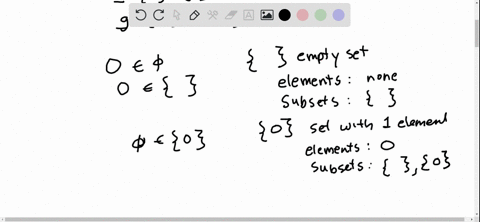 0 ∈ ϕ
0 ∈ { }
ϕ ∈ {0}
{ } empty set
elements: none
Subsets: { }
{0} set with 1 element
elements: 0
Subsets: { }, {0}